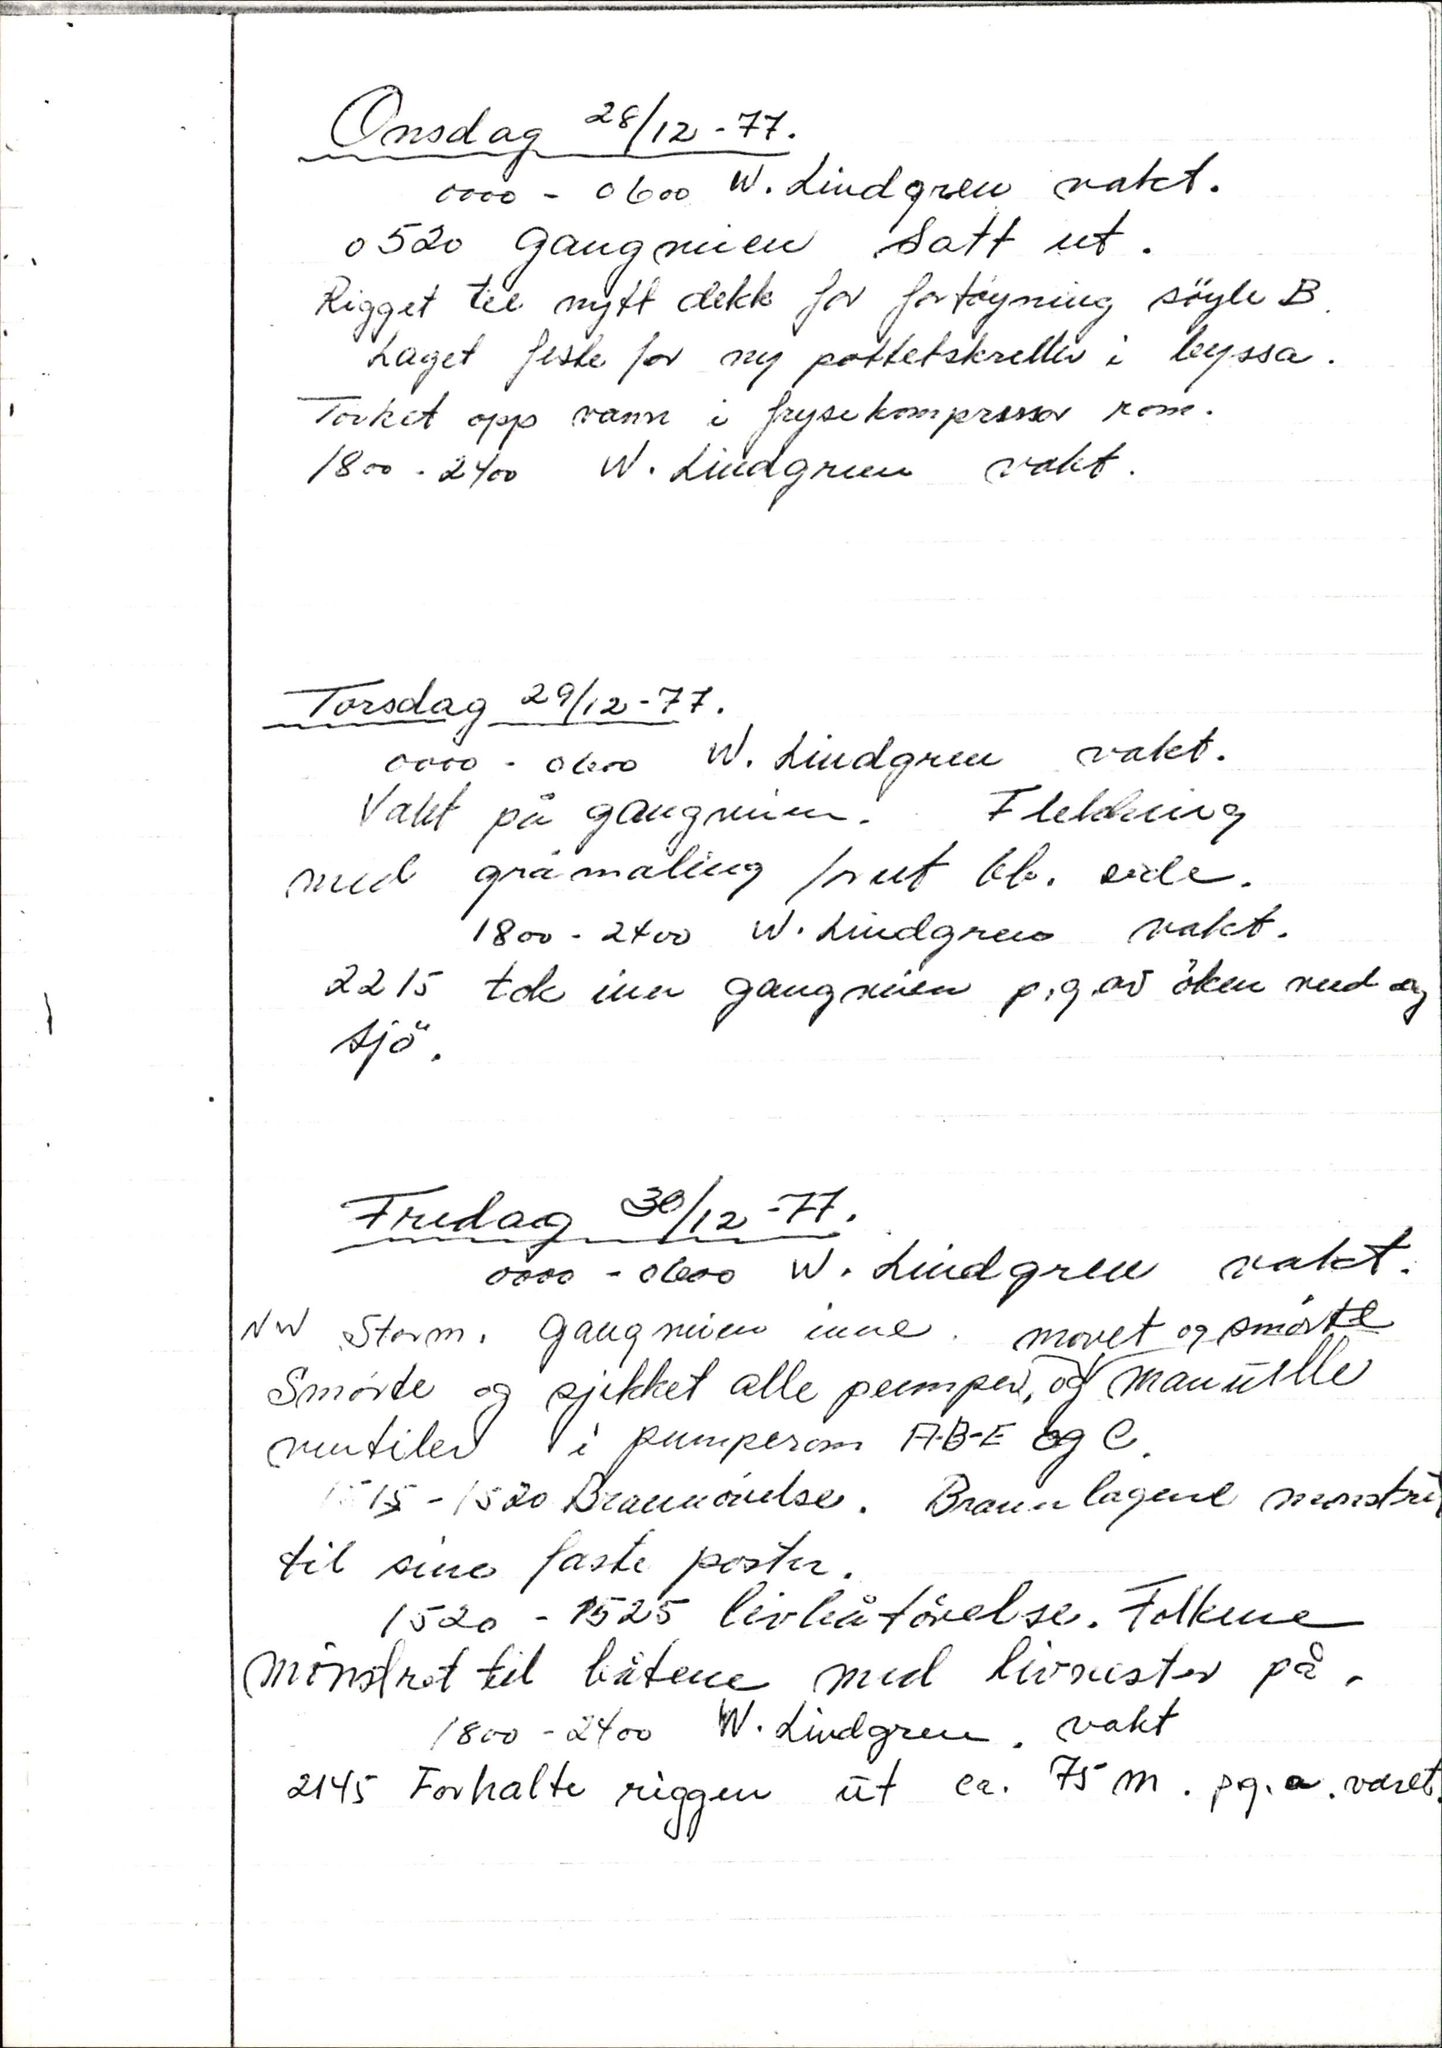 Onsdag 28/12-77.
0000 - 0600 W. Lindgren vakt.
0520 Gangveien satt ut.
Rigget til nytt dekk for fortøyning söyle B.
Laget feste for ny pottetskreller i byssa.
Tørket opp vann i frysekompressor rom.
1800 - 2400 W. Lindgren vakt.
Torsdag 29/12-77.
0000 - 0600 W. Lindgren vakt.
Vakt på gangveien. Flekking
med gråmaling forut bb. side.
1800 - 2400 W. Lindgren vakt.
2215 tok inn gangveien p.g.av öken vind og
sjö.
Fredag 30/12-77.
0000 - 0600 W. Lindgren vakt.
NW Storm. Gangveien inne. movet og smörte
Smörte og sjekket alle pumper, og manuelle
ventiler i pumperom A-B-E og C.
1515 - 1520 Brannövelse. Brannlagene mönstret
til sine faste poster.
1520 - 1525 livbåtövelse. Folkene
mönstret til båtene med livvester på.
1800 - 2400 W. Lindgren. vakt
2145 Forhalte riggen ut ca. 75 m. pg.a. været.